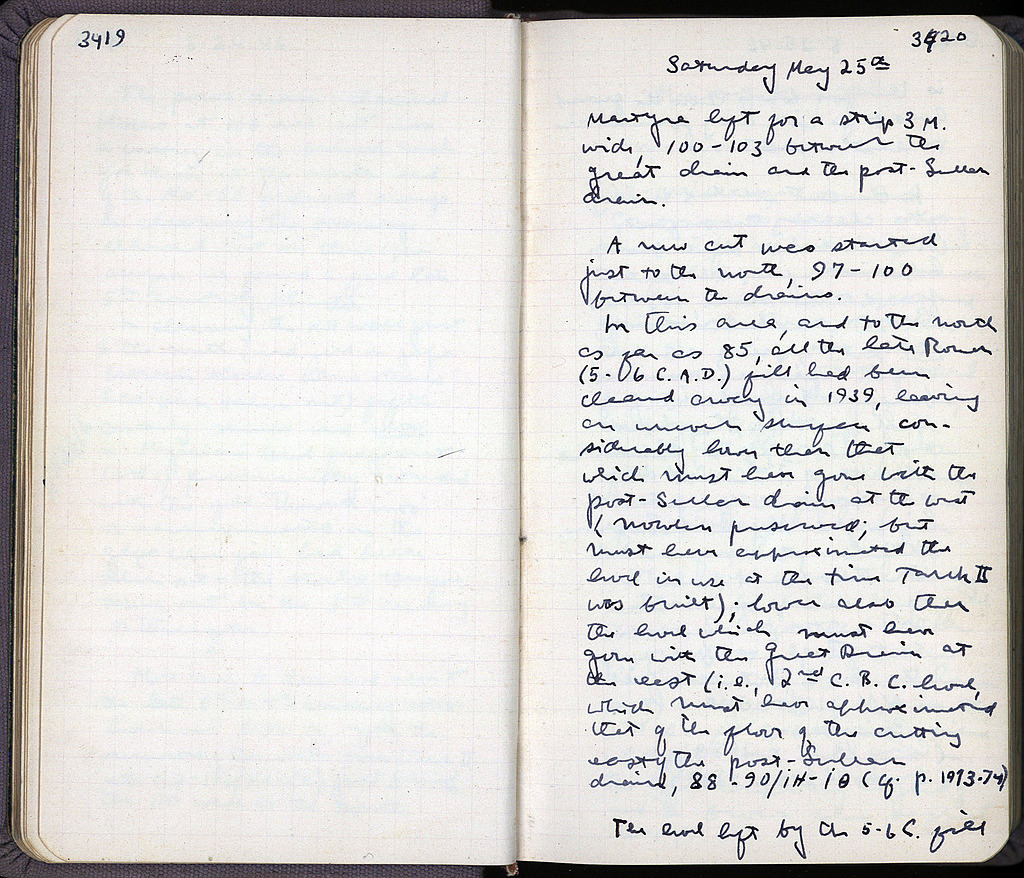 3419
3420
Saturday May 25th
Martyra left for a strip 3 M.
wide, 100-103 between the
great drain and the post-Sullan
drain.
A new cut was started
just to the north, 97-100
between the drains.
In this area, and to the north
as far as 85, all the late Roman
(5-6 C. A.D.) fill had been
cleaned away in 1939, leaving
an uneven surface con-
siderably lower than that
which must have gone with the
post-Sullan drain at the west
(nowhere preserved; but
must have approximated the
level in use at the time Tank II
was built); lower also than
the level which must have
gone with the Great Drain at
the east (i.e., 2nd C. B.C. level,
which must have approximated
that of the floor of the cutting
east of the post-Sullan
drain, 88-90/ΙΗ-ΙΘ (cf. p. 1973-74)
The level left by the 5-6 C. fill